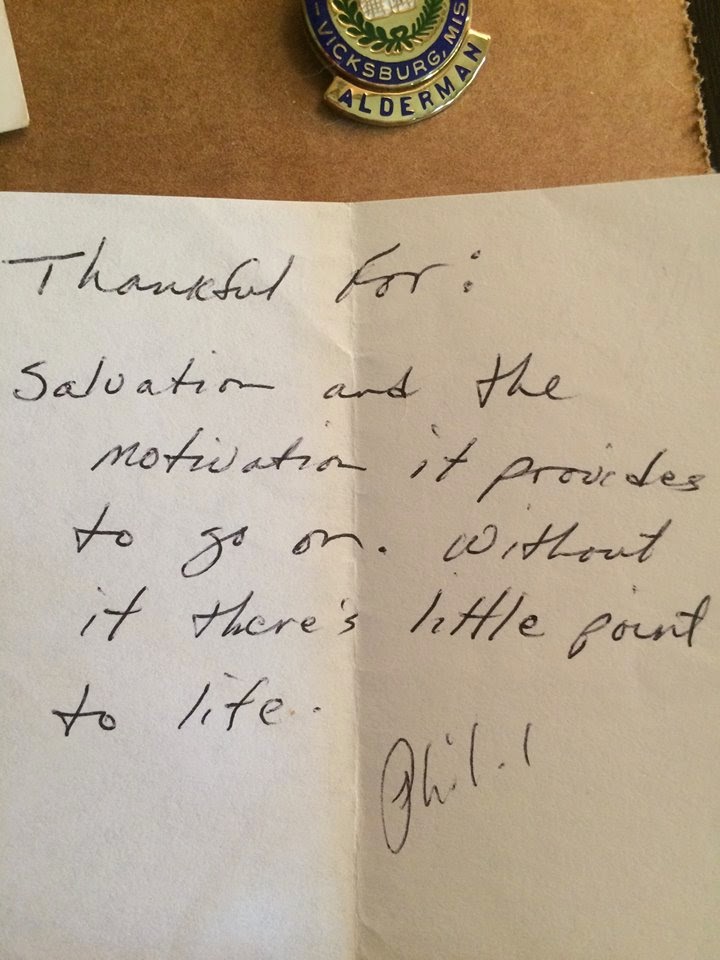 - VICKSBURG, MIS
ALDERMAN
Thankful for:
Salvation and the
motivation it provides
to go on. Without
it there's little point
to life.
Phil. 1